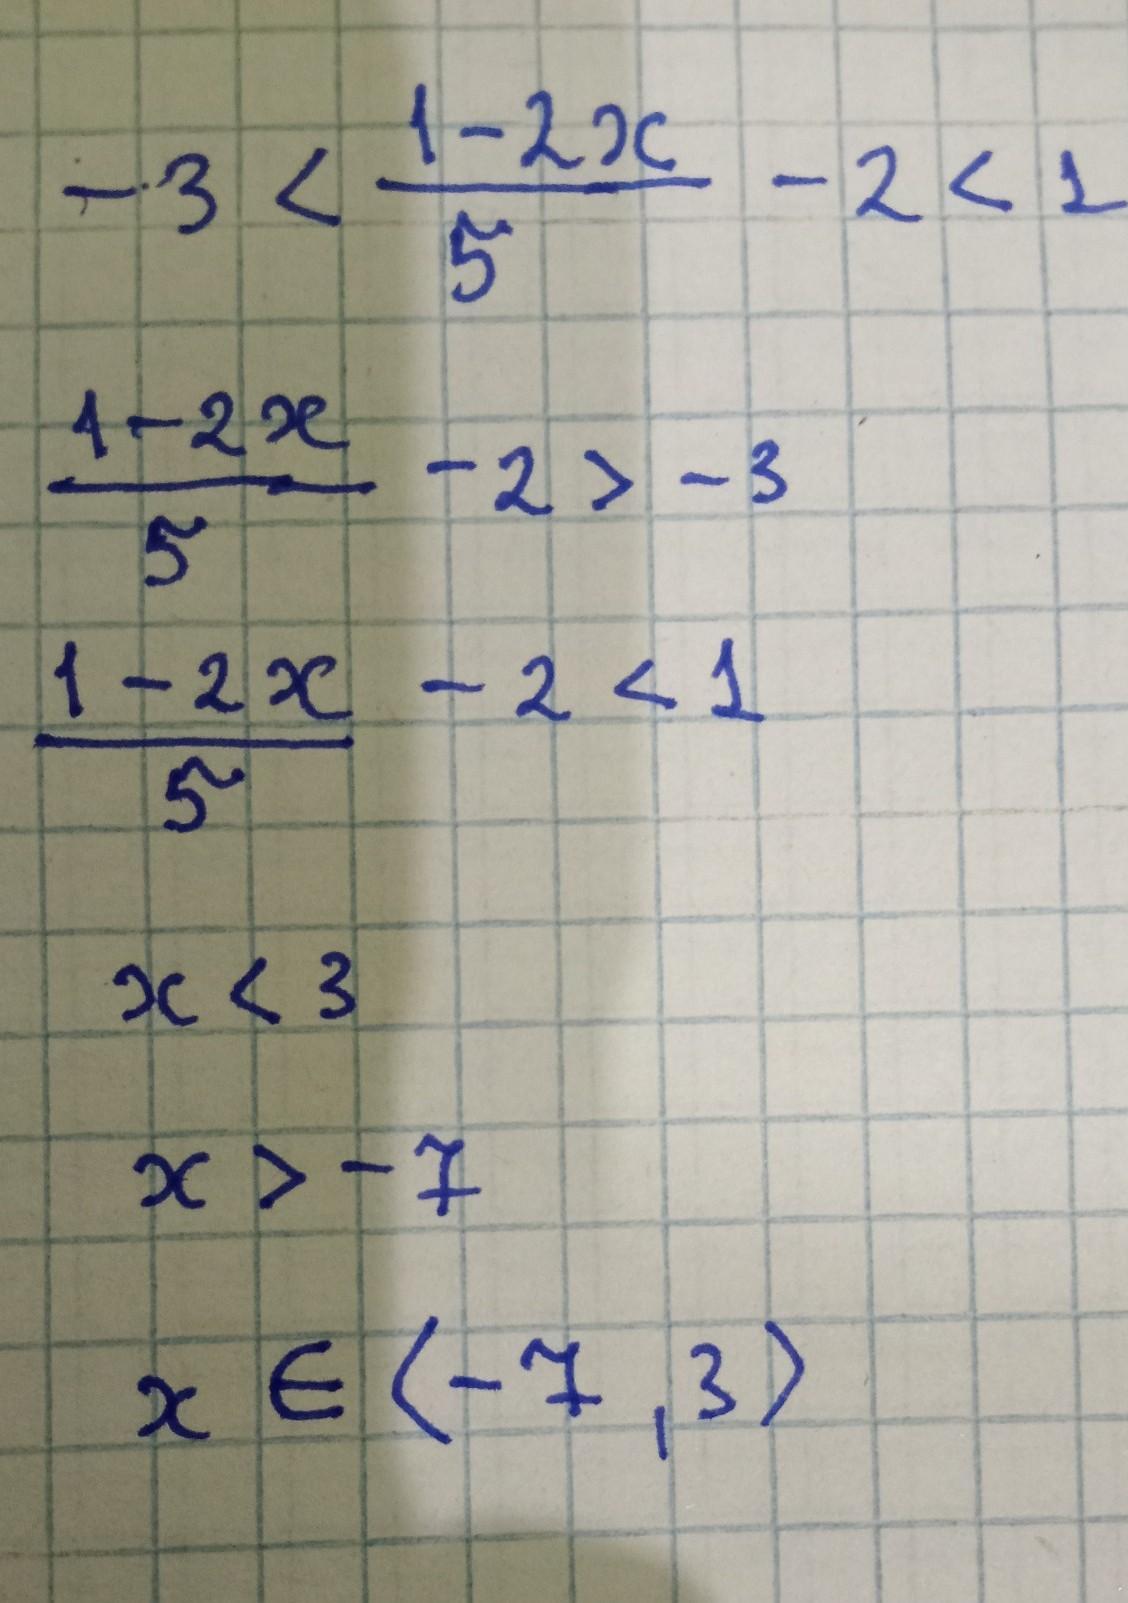 -3 < \frac{1-2x}{5} -2 < 1
\frac{1-2x}{5} -2 > -3
\frac{1-2x}{5} -2 < 1
x < 3
x > -7
x ∈ (-7, 3)